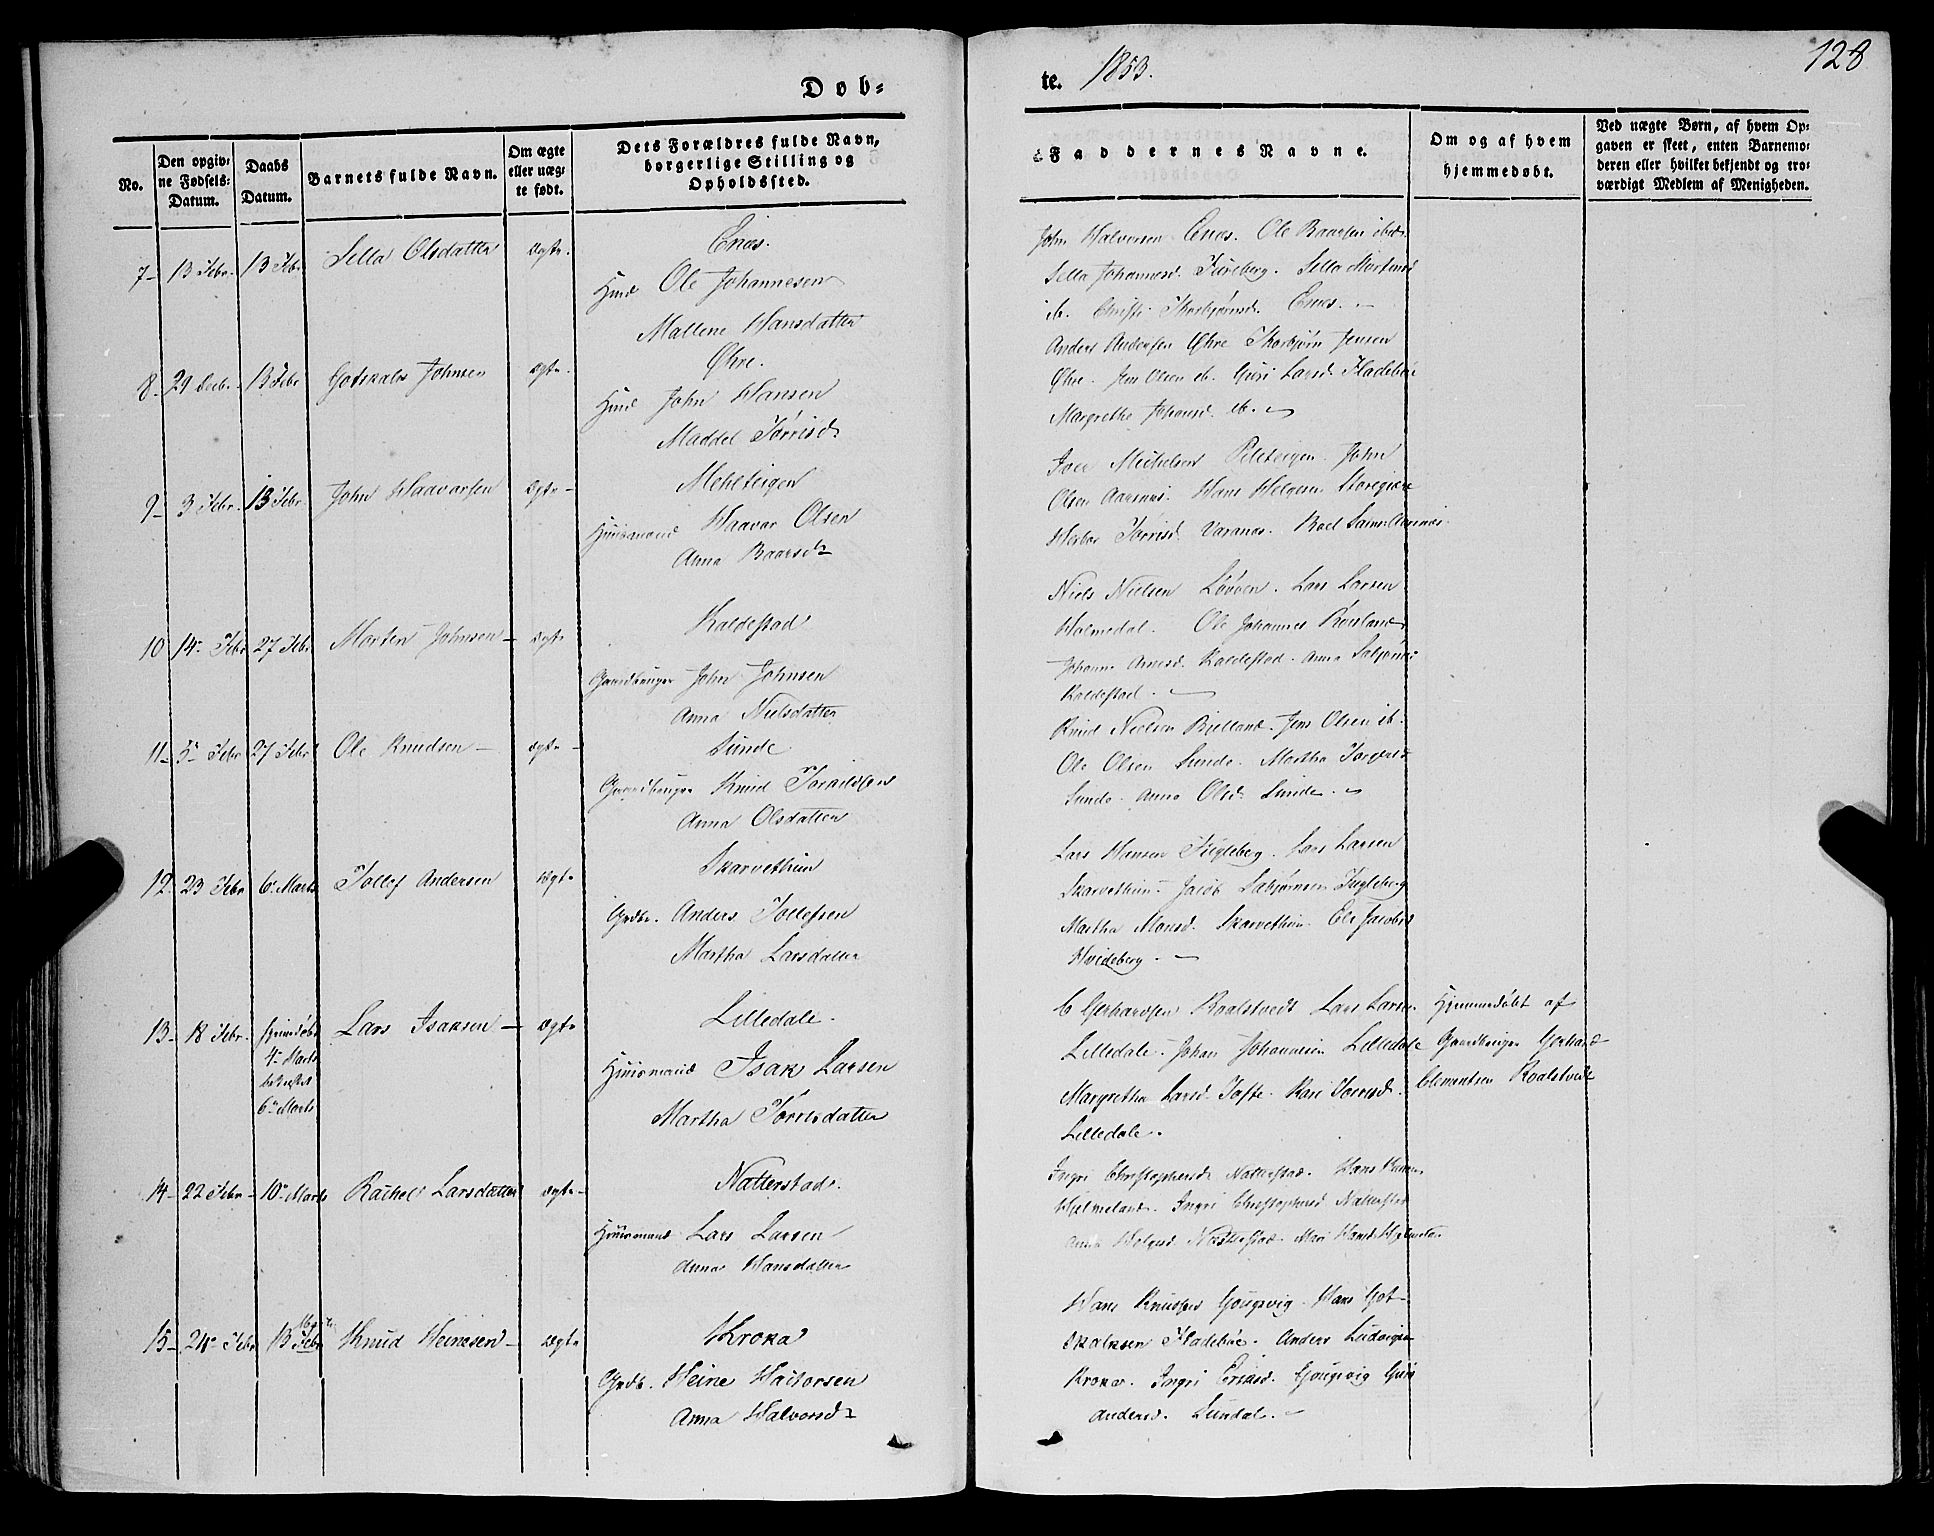 128
Døb=
te. 1853.
No.
Den opgiv=
ne Fødsels=
Datum.
Daabs
Datum.
Barnets fulde Navn.
Om ægte
eller uæg=
te født.
Dets Forældres fulde Navn,
borgerlige Stilling og
Opholdssted.
Faddernes Navne.
Om og af hvem
hjemmedøbt.
Ved uægte Børn, af hvem Op=
gaven er skeet, enten Barnemo=
deren eller hvilket bekjendt og tro=
værdigt Medlem af Menigheden.
7- 13 Febr. 13 Febr Sella Olsdatter ægte.
Enes.
Huusd Ole Johannesen
Mallene Hansdatter
John Halvorsen Enes. Ole Baarsen ibd.
Sella Johannesd. Fureberg. Sella Mortensd
ib. Christi Thorbjørnsd. Enes. -
8- 29 Decbr. 13 Febr Gotskalk Johnsen ægte.
Øhre.
Huusd John Hansen
Maddel Tørrisd.
Anders Andersen Øhre Thorbjørn Jensen
Øhre. Jens Olsen ib. Guri Larsd. Fladebøe
Margrethe Johansd. ib.
9- 3 Febr. 13 Febr. John Haavorsen ægte -
Mehlteigen
Huusmand Haavor Olsen
Anna Baarsdr
Iver Michelsen Pilteigen. John
Olsen Aarsnes. Hans Helgesen
Tørrisd. Varanes.
10 14- Febr 27 Febr. Morten Johnsen - ægte
Kaldestad
Gaardbruger John Johnsen
Anna Nielsdatter
Niels Nielsen Løvøen. Lars Larsen
Holmedal. Ole Johannes
Johanna Arnesd. Kaldestad. Anna
Kaldestad. -
11- 5- Febr 27 Febr Ole Knudsen - ægte -
Sunde
Gaardbruger Knud
Anna Olsdatter
Knud Nielsen Bielland. Jens Olsen ib.
Ole Olsen Sunde. Martha
Sunde. Anna Olsd. Sunde.
12- 23 Febr 6- Marts Tollef Andersen ægte
Skarvethun
Grdbr. Anders Tollefsen
Martha Larsdatter
Lars Hansen Fugleberg. Lars Larsen
Skarvethun- Jacob Fugleberg
Martha Monsd. Skarvethun. Eli Jacobsd
Hvideberg. -
13- 18 Febr. hjemdøbt Lars Isaksen - ægte
4- Marts
6- Marts
Lilledale.
Huusmand Isak Larsen
Martha Tørrisdatter
C Gerhardsen Raalstvedt Lars Larsen
Lilledale. Johan Johannesen Lilledale
Margretha Larsd. Tofte. Kari Tørrisd.
Lilledale.
Hjemmedøbt af
Gaardbruger Gerhard
Clementsen Raalstvedt
14- 22 Febr - 10- Marts Rachel Larsdatter ægte -
Natterstad.
Huusmand Lars Larsen
Anna Hansdatter
Ingri Christophersd. Natterstad. Hans
Hjelmeland. Ingri Christophersd Natterstad
Anna Helgesd Natterstad. Mari Hansd.
15- 24- Febr 13 Febr Marts Knud Heinesen - ægte
Kroka
Grdbr. Heine
Anna Halvorsdr
Hans Knudsen Gougsvig. Hans Got-
skalksen Fladebøe. Anders Ludvigsen
Kroka. Ingri Eriksd. Gougsvig Guri
Andersd. Sundal. -